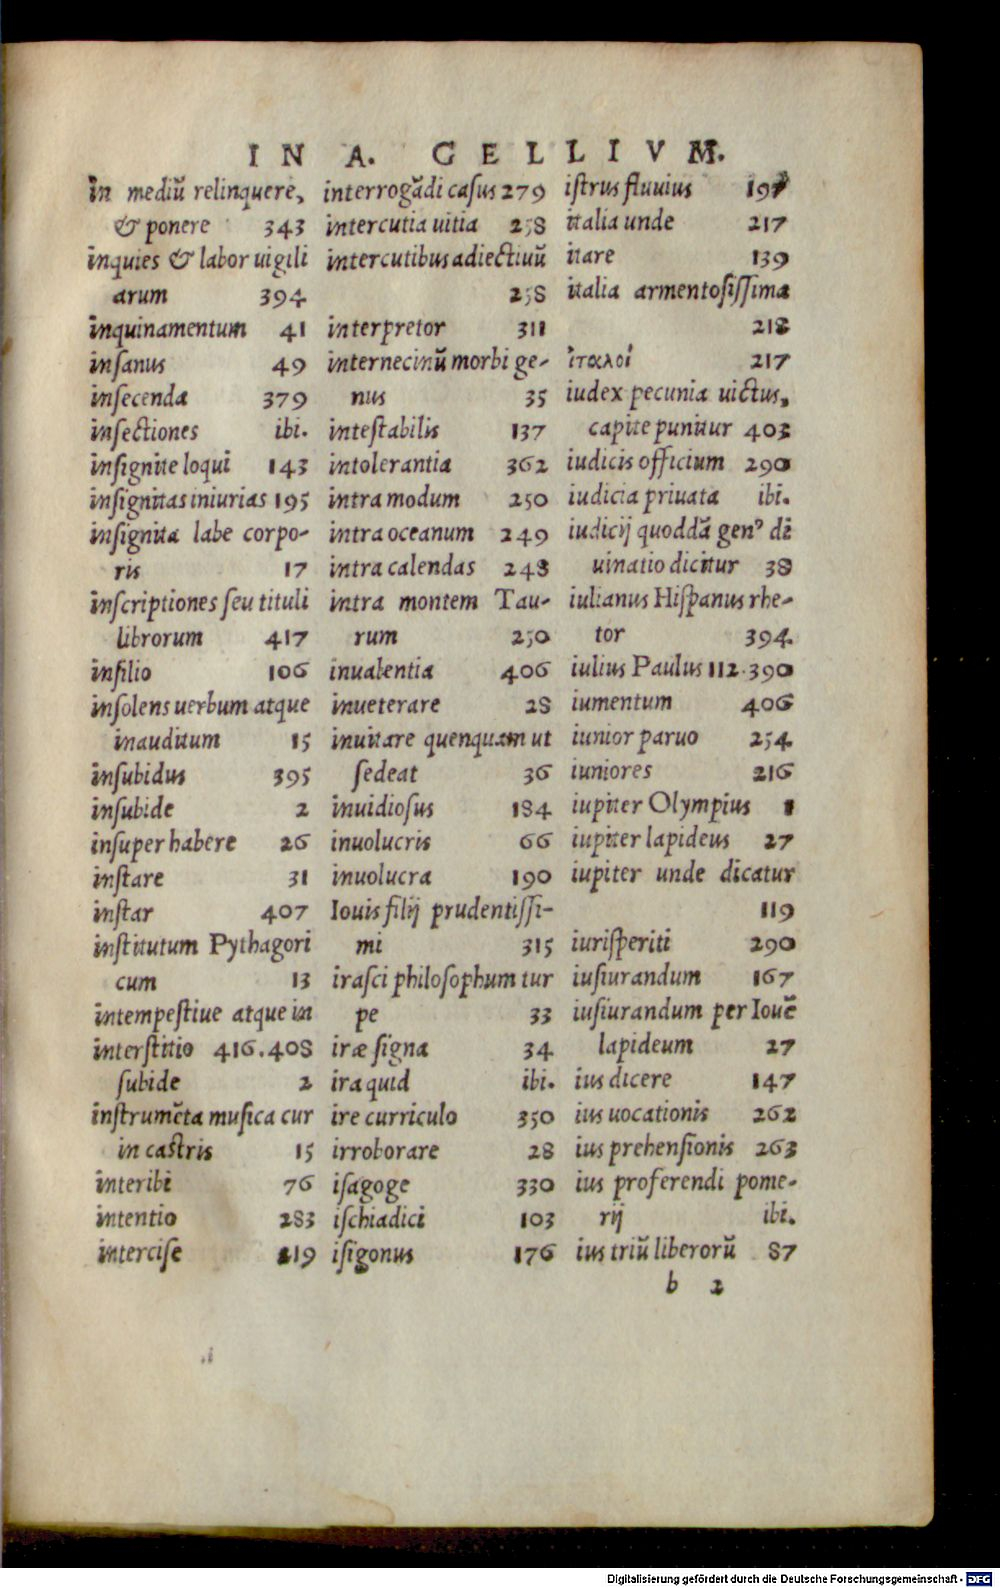 IN A. GELLIVM.
in mediū relinquere,
& ponere 343
inquies & labor uigili
arum 394
inquinamentum 41
insanus 49
insecenda 379
insectiones ibi.
insignite loqui 143
insignitas iniurias 195
insignita labe corpo-
ris 17
inscriptiones seu tituli
librorum 417
insilio 106
insolens uerbum atque
inauditum 15
insubidus 395
insubide 2
insuper habere 26
instare 31
instar 407
institutum Pythagori
cum 13
intempestiue atque in
interstitio 416.408
subide 2
instrumēta musica cur
in castris 15
interibi 76
intentio 283
intercise 219
interrogādi casus 279
intercutia uitia 258
intercutibus adiectiuū
258
interpretor 311
internecinū morbi ge-
nus 35
intestabilis 137
intolerantia 362
intra modum 250
intra oceanum 249
intra calendas 248
intra montem Tau-
rum 250
inualentia 406
inueterare 28
inuitare quenquam ut
sedeat 36
inuidiosus 184
inuolucris 66
inuolucra 190
Iouis filij prudentissi-
mi 315
irasci philosophum tur
pe 33
iræ signa 34
ira quid ibi.
ire curriculo 350
irroborare 28
isagoge 330
ischiadici 103
isigonus 176
istrus fluuius 197
italia unde 217
itare 139
italia armentosissima
218
ἰταλοὶ 217
iudex pecunia uictus,
capite punitur 403
iudicis officium 290
iudicia priuata ibi.
iudicij quoddā genꝰ di
uinatio dicitur 38
iulianus Hispanus rhe-
tor 394
iulius Paulus 112.390
iumentum 406
iunior paruo 254
iuniores 216
iupiter Olympius 1
iupiter lapideus 27
iupiter unde dicatur
119
iurisperiti 290
iusiurandum 167
iusiurandum per Iouē
lapideum 27
ius dicere 147
ius uocationis 262
ius prehensionis 263
ius proferendi pome-
rij ibi.
ius triū liberorū 87
b 2
Digitalisierung gefördert durch die Deutsche Forschungsgemeinschaft - DFG